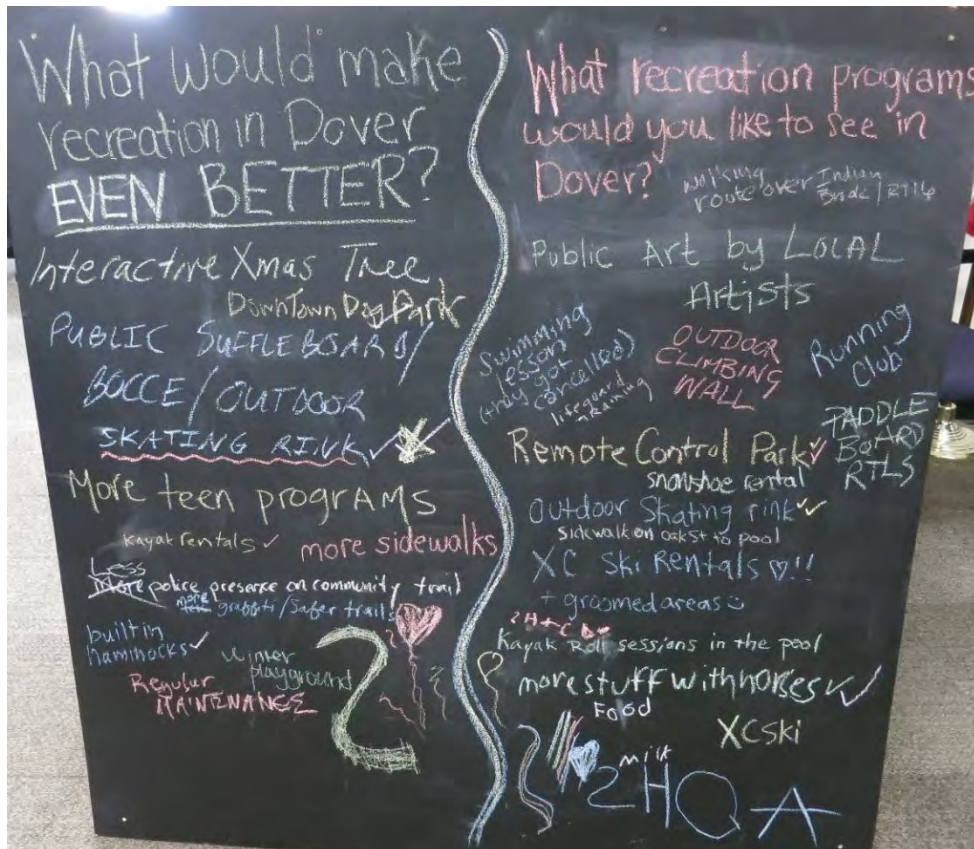 What would make
recreation in Dover
EVEN BETTER?
Interactive Xmas Tree
DownTown Dog Park
PUBLIC SUFFLEBOARD/
BOCCE/OUTDOOR
SKATING RINK ✓
More teen programs
kayak rentals ✓
more sidewalks
Less
more police presence on community trail
more
graffiti/Safer trails
built in
hammocks ✓
winter
playground
Regular
MAINTENANCE
2
What recreation programs
would you like to see in
Dover?
walking
route over Indian
Brook/Rt 16
Public Art by LOCAL
Artists
Swimming
lesson
got
(they cancelled)
lifeguard
training
OUTDOOR
CLIMBING
WALL
Running
Club
PADDLE
BOARD
RTLS
Remote Control Park ✓
snowshoe rental
Outdoor Skating rink ✓
sidewalk on oak st to pool
XC Ski Rentals ♡!!
+ groomed areas
2H+C
Kayak Roll sessions in the pool
more stuff with horses ✓✓
Food
XCski
milk
2HQA